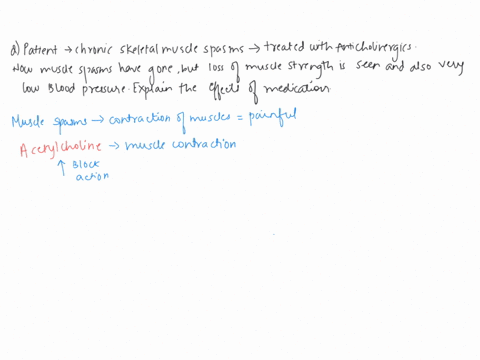 a) Patient → chronic skeletal muscle spasms → treated with anticholinergics.
Now muscle spasms have gone, but loss of muscle strength is seen and also very
low Blood pressure. Explain the effects of medication.
Muscle spasms → contraction of muscles = painful
Acetylcholine → muscle contraction
↑ Block
action